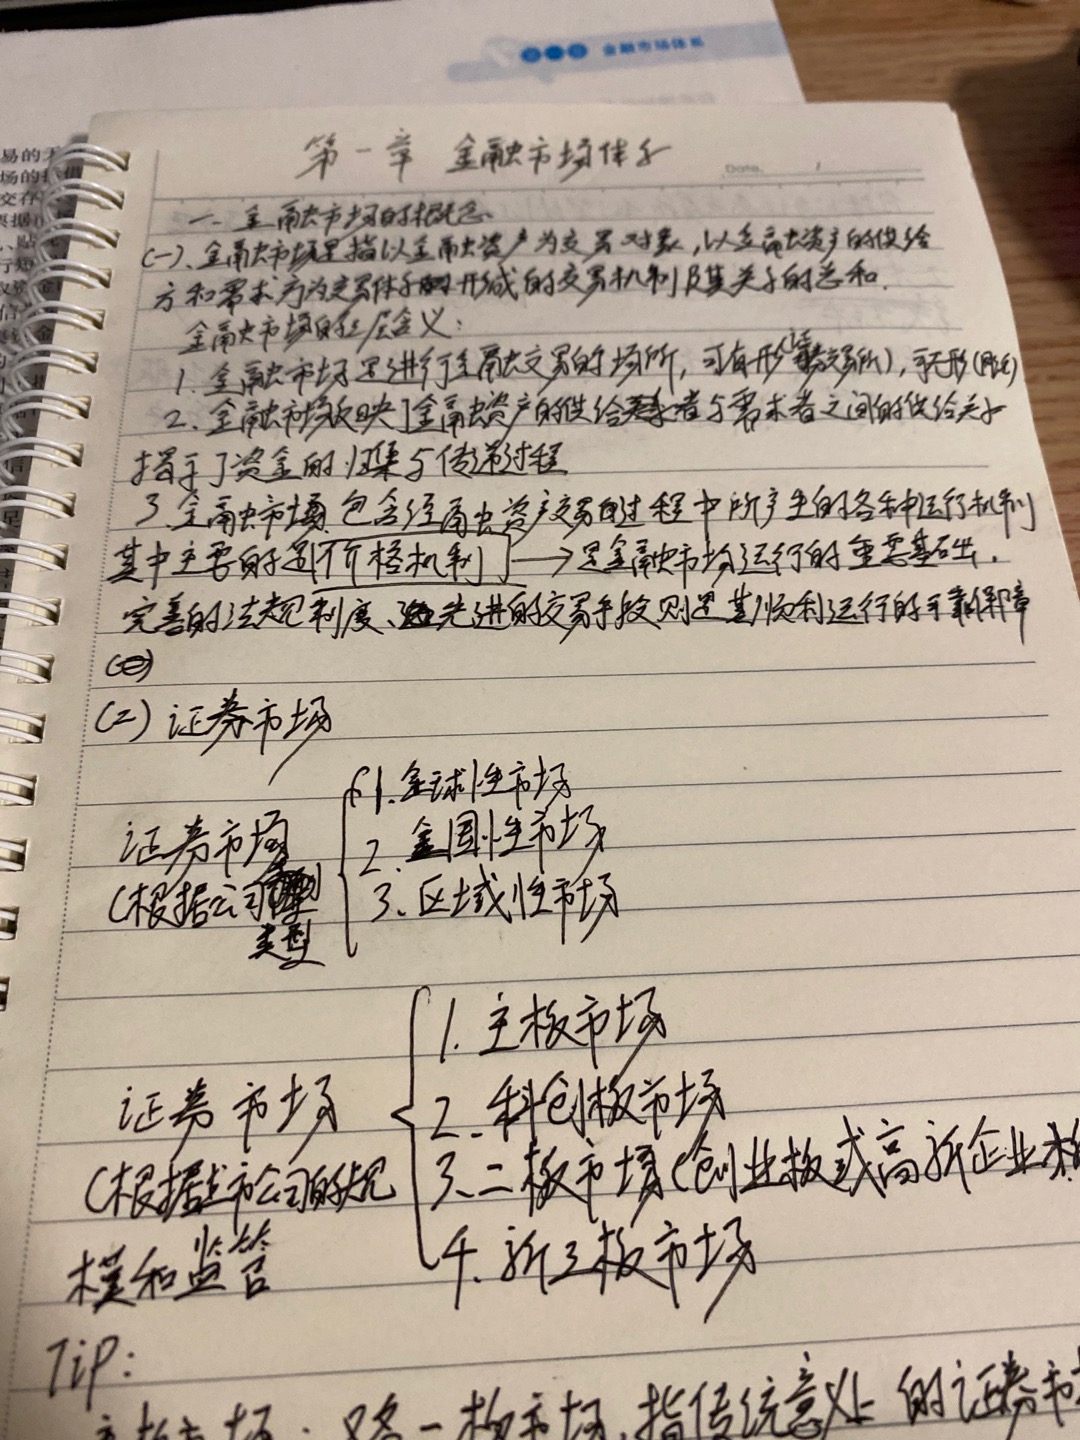 金融市场体系
易的
场的
交存
票据
第一章 金融市场体系
Date.
一、金融市场的概念
(一)、金融市场是指以金融资产为交易对象，以金融资产的供给
方和需求方为交易体系形成的交易机制及其关系的总和.
金融市场的三层含义：
1. 金融市场是进行金融交易的场所，可有形(证券交易所)，可无形
2. 金融市场反映了金融资产的供给者与需求者之间的供给关系
揭示了资金的归集与传递过程
3. 金融市场包含经融资产交易的过程中所产生的各种运行机制
其中主要的是价格机制 → 是金融市场运行的重要基础.
完善的法规制度、先进的交易手段则是其顺利运行的可靠保障
(二) 证券市场
证券市场
(根据公司
类型
1. 全球性市场
2. 全国性市场
3. 区域性市场
证券市场
(根据上市公司的规
模和监管
1. 主板市场
2. 科创板市场
3. 二板市场(创业板或高新企业板
4. 新三板市场
Tip:
主板市场：又名一板市场,指传统意义上的证券市场